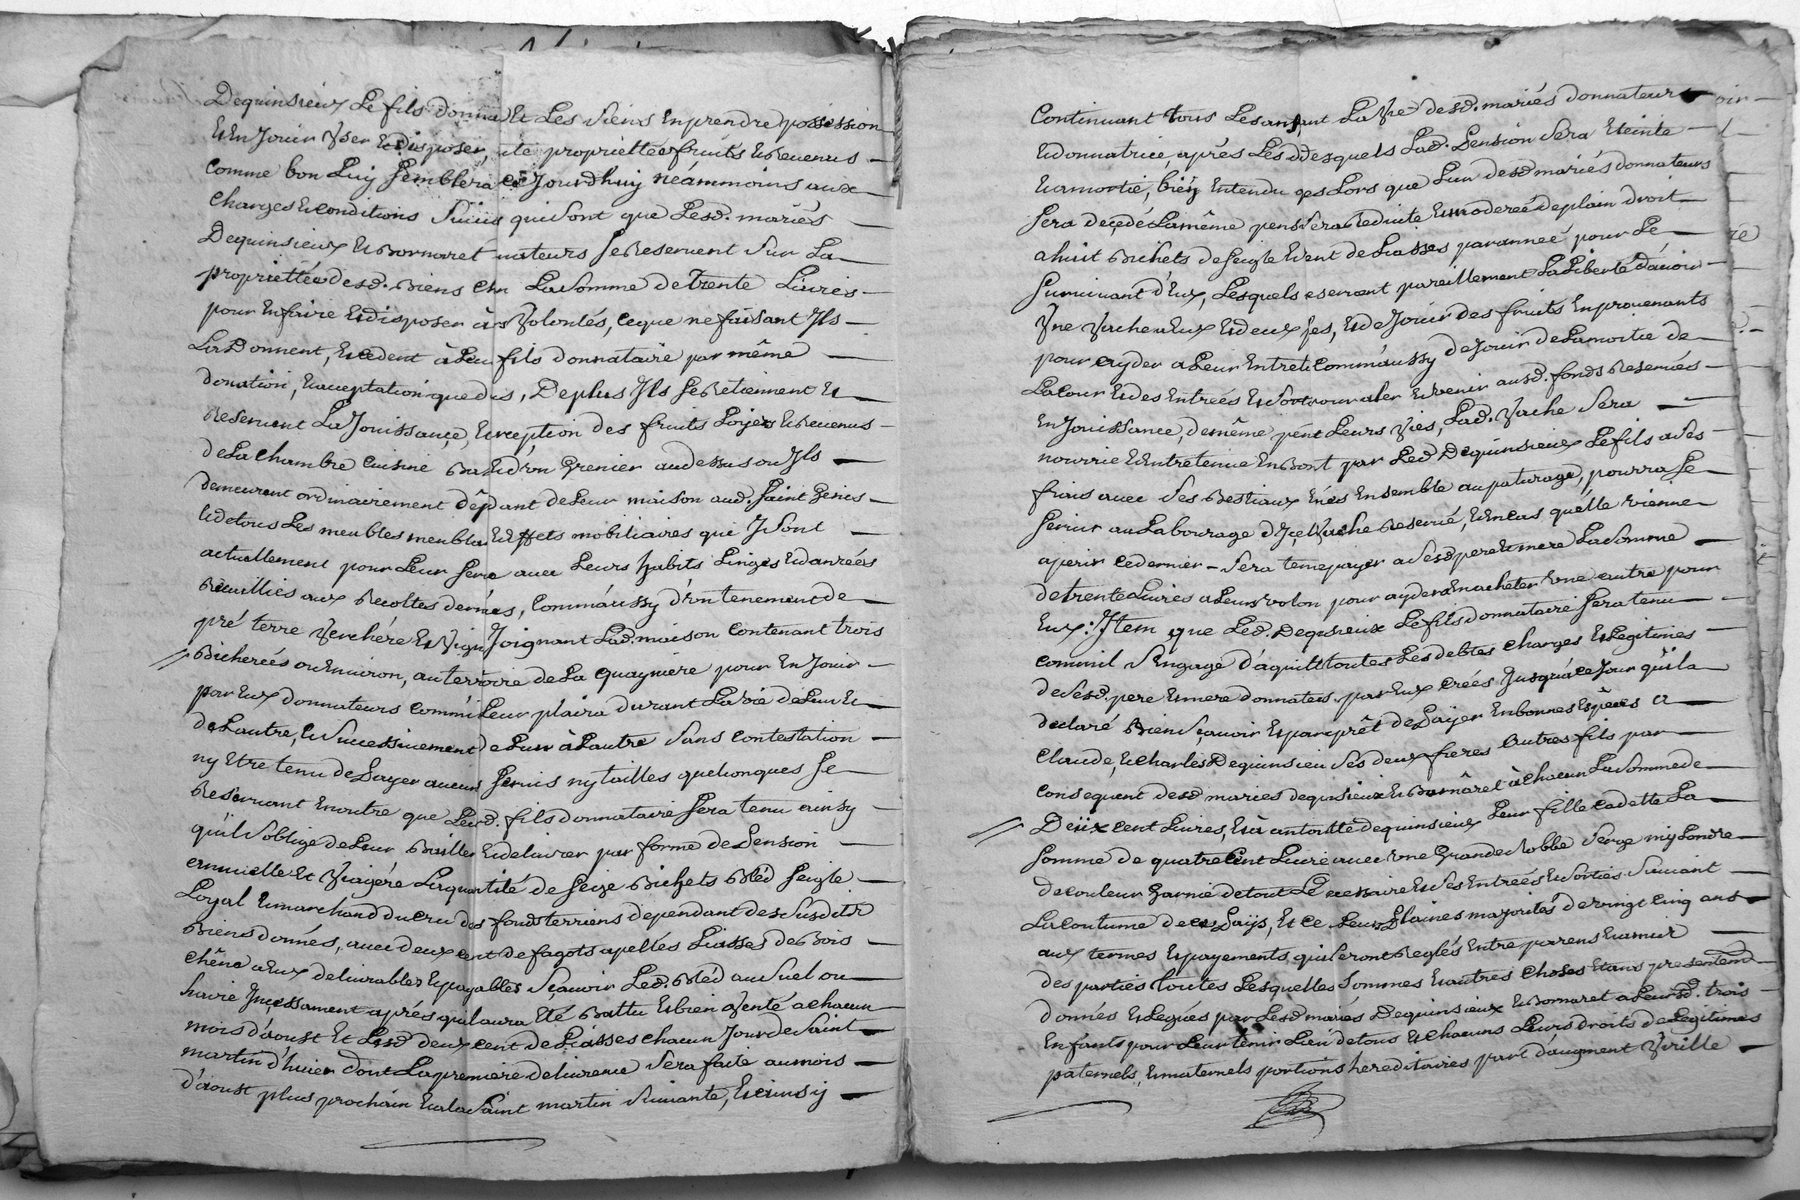 Dequinsieux Le fils donna Et Les siens En prendre possession
Et En Jouir Vser Et disposer, ite propriettée fruits Et Revenus
comme bon Luÿ semblera ce Jourdhuy néammoins aux
charges Et conditions suiu qui sont que Lesd. mariés
Dequinsieux Et Bornaret nateurs se Reservent sur La
propriettée desd. Biens La somme de trente Livres
pour En faire Et disposer à Volontés, ce que ne faisant Ils
La Donnent, Et cedent à Leu fils donnataire par même
donation, Et acceptation que d, De plus Ils se Retiennent Et
Reservent La Jouissançe, Et reption des fruits Loÿers Et Revenus
de La chambre cuisine Ba Et d'un Grenier au dessus ou Ils
demeurent ordinairement dépant de Leur maison aud. Saint Genies
Et de tous Les meubles meubla Et Effets mobiliaires qui Y sont
actuellement pour Leur serv avec Leurs habits Linges Et danrées
Recuillies aux Recoltes derniés, Comm'aussy d'vn tenement de
pré terre Verchére Et Vign Joignant Lad. maison contenant trois
Bicherées ou Environ, au terroire de La quaynière pour En Jouir
par Eux donnateurs commé Leur plaira durant La vie de Lun Et
de Lautre, Et successivement de Lun à Lautre sans contestation
ny Etre tenu de Payer aucuns servis ny tailles quelconques se
Reservant En outre que Led. fils donnataire sera tenu ainsy
qu'il s'oblige de Leur Bailler Et delivrer par forme de Pension
annuelle Et Viagére La quantité de seize Bichets Bled seigle
Loyal Et marchand du cru des fonds terriens dépendant des susdits
Biens donnés, avec deux cent de fagots apellés Liasses de Bois
chêne a Eux delivrables Et payables sçavoir Led. Bléd au suel ou
havie Inçessament aprés quil aura Eté Battu Et bien Venté a chacun
mois d'aoust Et Lesd deux cent de Liasses chacun Jour de Saint
martin d'hiver dont La premiere delivrence sera faite au mois
d'aoust plus prochain Et a La Saint martin suivante, Et ainsy
Continuant tous Les ans ant La Vie desd. mariés donnateur
Et donnatrice, aprés Les d desquels Lad. Pension sera Eteinte
Et amortie, bien Entendu qes Lors que L'un desd mariés donnateurs
sera deçedé La même pens sera Reduite Et moderéé de plain droit
a huit Bichets de seigle Et cent de Liasses par annéé pour Le
survivant d'Eux, Lesquels eservent pareillement La Liberté d'avoir
Vne Vache Eux Et deux es, Et de Jouir des fruits En provenants
pour ayder a Leur Entreti Comm'aussy de Jouir de La moitié de
La cour Et des Entréés Et sor our aler Et venir ausd. fonds Reservés
En Jouissance, de même pent Leurs Vies, Lad. Vache sera
nourrie Et Entretenue En Bont par Led. Dequinsieux Le fils a ses
frais avec ses Bestiaux nés Ensemble au paturage, pourra se
servir au Labourage d'Içe Vache Reservé, Et En cas qu'elle vienne
a perir ce dernier sera tenu payer a sesd pere Et mere La somme
de trente Livres a Leurs volon pour ayder En acheter Vne autre pour
Eux: Item que Led. Dequinsieux Le fils donnataire sera tenu
comm'il s'engage d'aquitt toutes Les debtes charges Et Legitimes
de sesd. pere Et mere donnates par Eux créés Jusqu'à ce Jour qu'il a
declaré Bien sçavoir Et par prêt de Payer En bonnes Espèces a
claude, Et charles Dequinsieu ses deux freres Autres fils par
consequent desd maries dequisieux Et Bornâret à chacun La somme de
Deüx cent Livres, Et à antoi tte dequinsieux Leur fille cadette La
somme de quatre Cent Livre avec vne Grande Robbe serge my Londre
de couleur garnie de tout Le cessaire Et ses Entréés Et sorties suivant
La coutume de ces Païs, Et ce Leurs Plaines majorités de vingt cinq ans
aux termes Et payements qui seront Reglés Entre parens Et amis
des parties Toutes Lesquelles sommes Et autres choses Etans presentemt
donnés Et Legués par Lesd mariés Dequinsieux Et Bornaret a Leursd. trois
Enfants pour Leur tenir Lieu de tous Et chacuns Leurs droits de Legitimes
paternels, Et maternels portions hereditaires part d'augment Virille